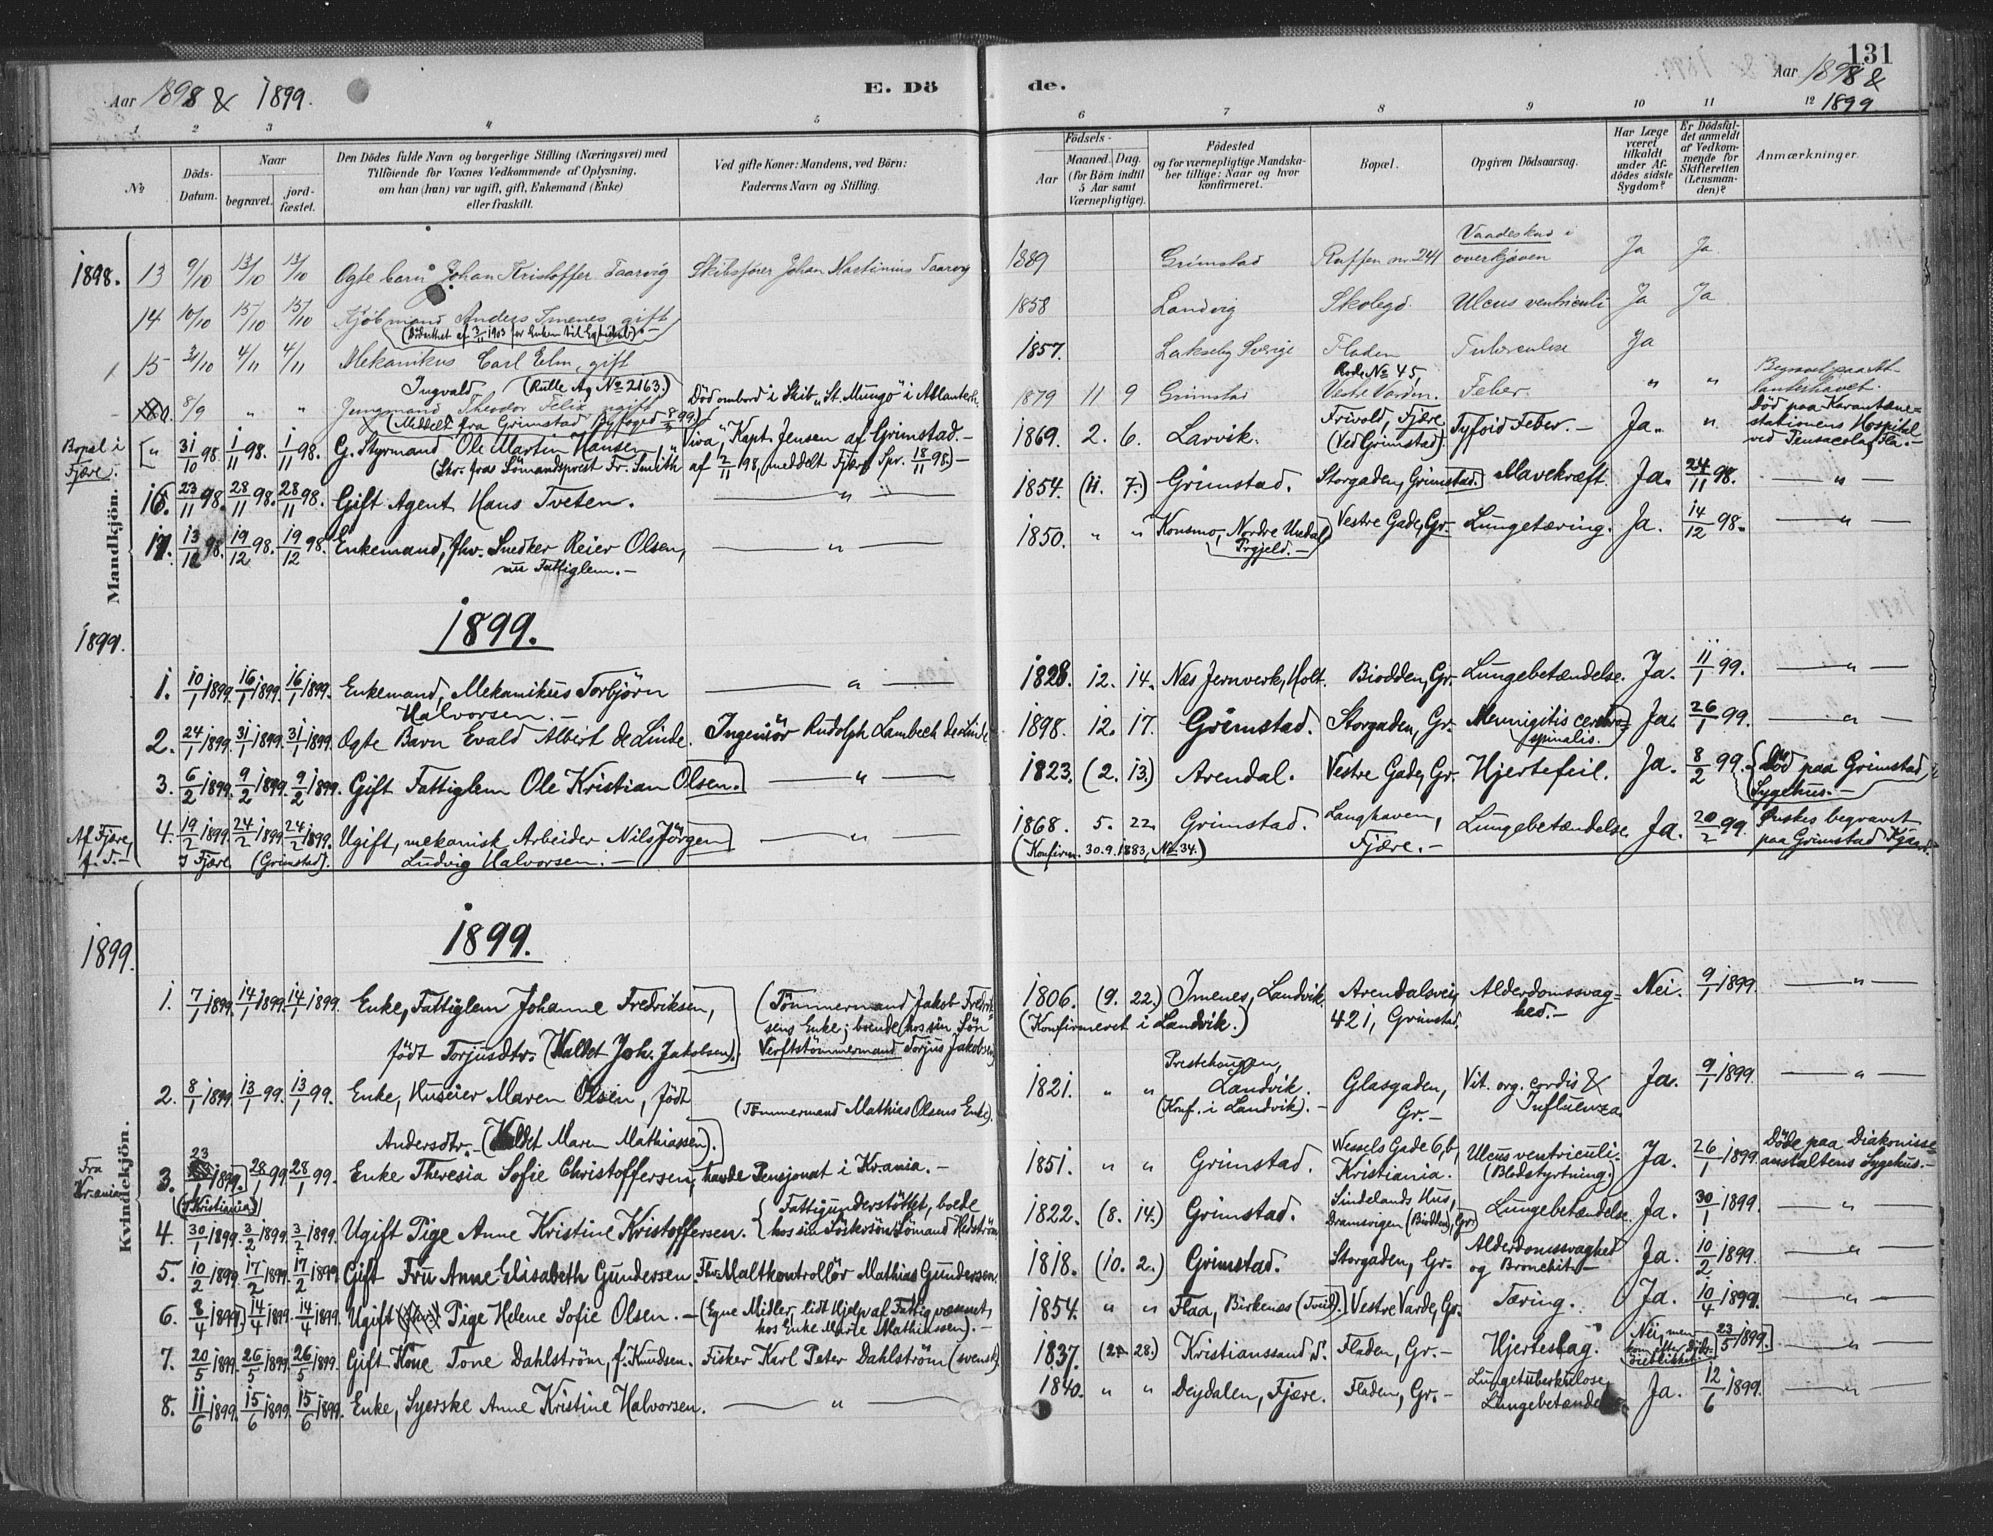 131
Aar 1898 & 1899. E. Dö de. Aar 1898 & 1899
1 2 3 4 5 6 7 8 9 10 11 12
No Döds-Datum. Naar begravet. jordfæstet. Den Dödes fulde Navn og borgerlige Stilling (Næringsvei) med Tilföiende for Voxnes Vedkommende af Oplysning, om han (hun) var ugift, gift, Enkemand (Enke) eller fraskilt. Ved gifte Koner: Mandens, ved Börn: Faderens Navn og Stilling. Födsels- Aar Maaned. Dag. (for Börn indtil 5 Aar samt Værnepligtige). Födested og for værnepligtige Mandskaber tillige: Naar og hvor konfirmeret. Bopæl. Opgiven Dödsaarsag. Har Læge været tilkaldt under Afdödes sidste Sygdom? Er Dödsfaldet anmeldt af Vedkommende for Skifteretten (Lensmanden)? Anmærkninger.
Mandkjön.
1898. 13 9/10 13/10 13/10 Ægte barn Johan Kristoffer Taarvig Skibsfører Johan Mastinius Taarvig 1889 Grimstad nr 241 Vaadeskud i overkjøven Ja Ja
14 10/10 15/10 15/10 Kjöbmand Anders Imenes, gift 1858 Landvig Skolegd. Ulcus ventriculi Ja Ja
15 31/10 4/11 4/11 Mekanikus Carl Elm, gift 1857. Lakseby Sverige Fladen Tuberculose Ja
8/9 " " Jungmand Ingvald Theodor Felix ugift (Rulle A, No 2163.) Död ombord i Skib "St. Mungo" i Atlanterh. 1879 11 9 Grimstad Rode No 45, Vestre Varden. Feber. " " Begravet paa Atlanterhavet.
(Meddelt fra Grimstad Byfoged 8/2 99)
Bopæl i Fjære. " 31/10 98. 1/11 98. 1/11 98. G. Styrmand Ole Martin Hansen, "Viva", Kapt. Jensen af Grimstad.- 1869. 2. 6. Larvik. Frivold, Fjære (Ved Grimstad). Tyfoid Feber.- Ja. " Död paa Karantænestationens Hospital ved Pensacola, Fla.-
(Skr. fras Sömandsprest Fr. Smith af 2/11 98, meddelt Fjære Spr. 18/11 98.)-
16. 23/11 98. 28/11 98. 28/11 98. Gift Agent Hans Tveten. " 1854. (11. 7.) Grimstad. Storgaden, Grimstad. Mavekræft. Ja. 24/11 98. "
17. 13/12 98. 19/12 98. 19/12 98. Enkemand, fhv. Snedker Reier Olsen, nu Fattiglem.- " 1850. " " Konsmo, Nordre Undal Prgjeld.- Vestre Gade, Gr. Lungetæring. Ja. 14/12 98. "
1899.
1899.
1. 10/1 1899. 16/1 1899. 16/1 1899. Enkemand, Mekanikus Torbjörn Halvorsen.- " 1828. 12. 14. Næs Jernverk, Holt. Biodden, Gr. Lungebetændelse. Ja. 11/1 99. "
2. 24/1 1899. 31/1 1899. 31/1 1899. Ægte Barn Evald Albert de Linde. Ingeniör Rudolph Lambech de Linde 1898. 12. 17. Grimstad. Storgaden, Gr. Mennigitis cerebrospinalis. Ja. 26/1 99. "
3. 6/2 1899. 9/2 1899. 9/2 1899. Gift Fattiglem Ole Kristian Olsen. " 1823. (2. 13.) Arendal. Vestre Gade, Gr. Hjertefeil. Ja. 8/2 99. Död paa Grimstad Sygehus.-
Af Fjære, 4. 19/2 1899. 24/2 1899. 24/2 1899. Ugift, mekanisk Arbeider Nils Jörgen Ludvig Halvorsen.- " 1868. 5. 22. Grimstad. Langhaven, Fjære.- Lungebetændelse. Ja. 20/2 99. Ønskes begravet paa Grimstad Kgaard.
I Fjære (Grimstad). (Konfirm. 30.9.1883, No 34.)
1899.
1899.
Kvindekjön.
1. 7/1 1899. 14/1 1899. 14/1 1899. Enke, Fattiglem Johanne Fredriksen, födt Torjusdtr. (Kaldet Joh. Jakobsen). (Tömmermand Jakob Fredriksens Enke; boende hos sin Sön Verftstömmermand Torjus Jakobsen) 1806. (9. 22.) Imenes, Landvik (Konfirmeret i Landvik.) Arendalsvei, 421, Grimstad. Alderdomssvaghed.- Nei. 9/1 1899. "
2. 8/1 1899. 13/1 99. 13/1 99. Enke, Huseier Maren Olsen, födt Andersdtr.- (Kaldet Maren Mathiassen). (Tömmermand Mathias Olsens Enke). 1821. " " Prestehaugen, Landvik. (Knf. i Landvik).- Glasgaden, Gr.- Vit. org. cordis & Influenza Ja. 9/1 1899. "
Fra Kr.ania 3. 23/1 1899. (I Kristiania) 28/1 99. 28/1 99. Enke Theresia Sofie Christoffersen, havde Pensjonat i Krania.- 1851. " " Grimstad. Wessels Gade 6, b, Kristiania. Ulcus ventriculi. (Blodstyrtning) Ja. 26/1 1899 Døde paa Diakonisseanstaltens Sygehus.-
4. 30/1 1899. 3/2 1899. 3/2 1899. Ugift Pige Anne Kristine Kristoffersen. Fattigunderstöttet, boede hos sin Söstersön Sömand Hedström 1822. (8. 14.) Grimstad. Sindelands Hus, Dramsvigen (Biodden), Gr. Lungebetændelse. Ja. 30/1 1899. "
5. 10/2 1899. 17/2 1899. 17/2 1899. Gift Fru Anne Elisabeth Gundersen Fhv. Maltkontrollör Mathias Gundersen. 1818. (10. 2.) Grimstad. Storgaden, Gr. Alderdomssvaghed og Bronchit.- Ja. 10/2 1899. "
6. 8/4 1899. 14/4 1899. 14/4 1899. Ugift Pige Helene Sofie Olsen.- (Egne Midler, lidt Hjelp af Fattigvæsenet, hos Enke Marte Mathiassen).- 1854. " " Flaa, Birkenes (Tveid). Vestre Varde, Gr. Tæring. Ja. 10/4 1899. "
7. 20/5 1899. 26/5 1899. 26/5 1899. Gift Kone Tone Dahlström, f. Knudsen. Fisker Karl Peter Dahlström (svensk) 1837. 28.) Kristianssand S. Fladen, Gr.- Hjerteslag. Nei, men kom efter Dödsöieblikket 23/5 1899. "
8. 11/6 1899. 15/6 1899. 15/6 1899. Enke, Syerske Anne Kristine Halvorsen. " 1840. " " Deydalen, Fjære. Fladen, Gr.- Lungetuberkulose, Lungebetændelse Ja. 12/6 1899. "